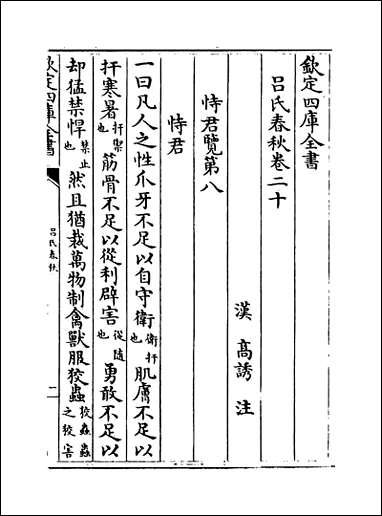 欽定四庫全書
呂氏春秋卷二十
漢 高誘 注
恃君覽第八
恃君
一曰凡人之性爪牙不足以自守衛衛扞也肌膚不足以
扞寒暑扞禦也筋骨不足以從利辟害從隨也勇敢不足以
却猛禁悍禁止也然且猶裁萬物制禽獸服狡蟲狡蟲蟲之狡害
欽定四庫全書
呂氏春秋